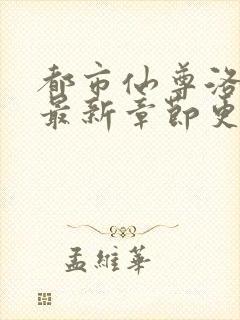 都市仙尊洛
最新章節更
孟維華